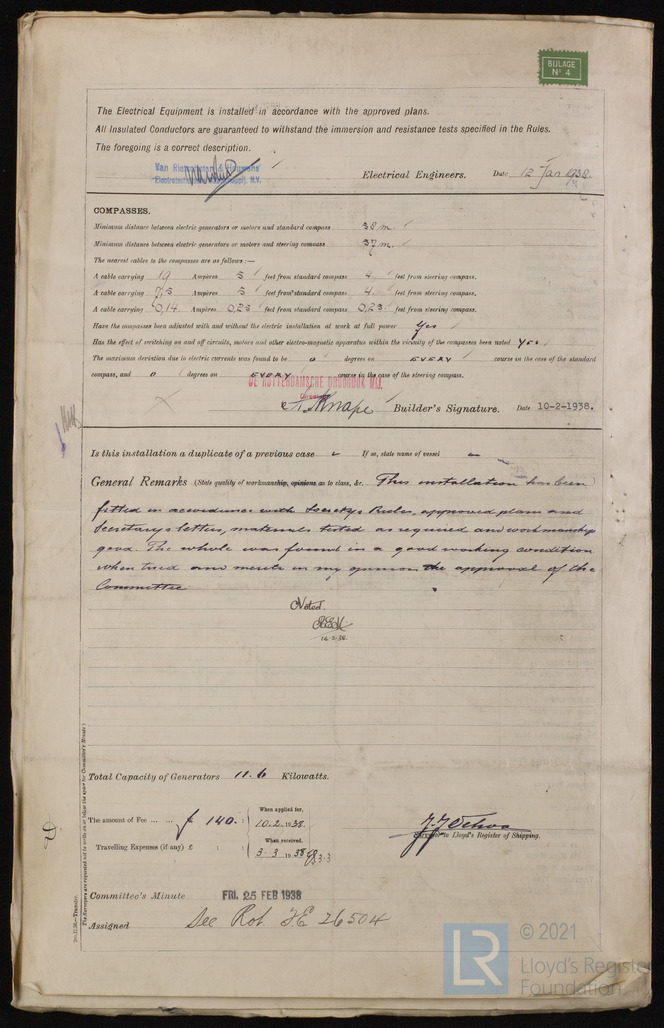 BIJLAGE
No 4
The Electrical Equipment is installed in accordance with the approved plans.
All Insulated Conductors are guaranteed to withstand the immersion and resistance tests specified in the Rules.
The foregoing is a correct description.
Electrical Engineers. Date 12 Jan 1938.
COMPASSES.
Minimum distance between electric generators or motors and standard compass 38 m.
Minimum distance between electric generators or motors and steering compass 37 m.
The nearest cables to the compasses are as follows:—
A cable carrying 19 Ampères 5 feet from standard compass 4 feet from steering compass.
A cable carrying 7,5 Ampères 5 feet from standard compass 4 feet from steering compass.
A cable carrying 0,14 Ampères 0,25 feet from standard compass 0,25 feet from steering compass.
Have the compasses been adjusted with and without the electric installation at work at full power Yes
Has the effect of switching on and off circuits, motors and other electro-magnetic apparatus within the vicinity of the compasses been noted Yes
The maximum deviation due to electric currents was found to be 0 degrees on EVERY course in the case of the standard
compass, and 0 degrees on EVERY course in the case of the steering compass.
DE ROTTERDAMSCHE DROOGDOK MIJ.
Builder's Signature. Date 10-2-1938.
Is this installation a duplicate of a previous case If so, state name of vessel
General Remarks (State quality of workmanship, opinions as to class, &c. This installation has been
fitted in accordance with Society's Rules, approved plans and
Secretary's letters, materials tested as required and workmanship
good. The whole was found in a good working condition
when tried and merits in my opinion the approval of the
Committee
Noted.
Total Capacity of Generators 11.6 Kilowatts.
The amount of Fee ... ... f 140. : When applied for, 10.2.1938.
Travelling Expenses (if any) £ : : When received, 3.3.1938
Surveyor to Lloyd's Register of Shipping.
Committee's Minute FRI. 25 FEB 1938
Assigned See Rot FE 26504
(The Surveyors are requested not to write on or below the space for Committee's Minute.)
© 2021
LR
Lloyd's Register
Foundation